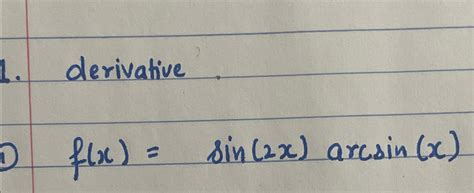 1. derivative.
① f(x) = sin(2x) arcsin(x)